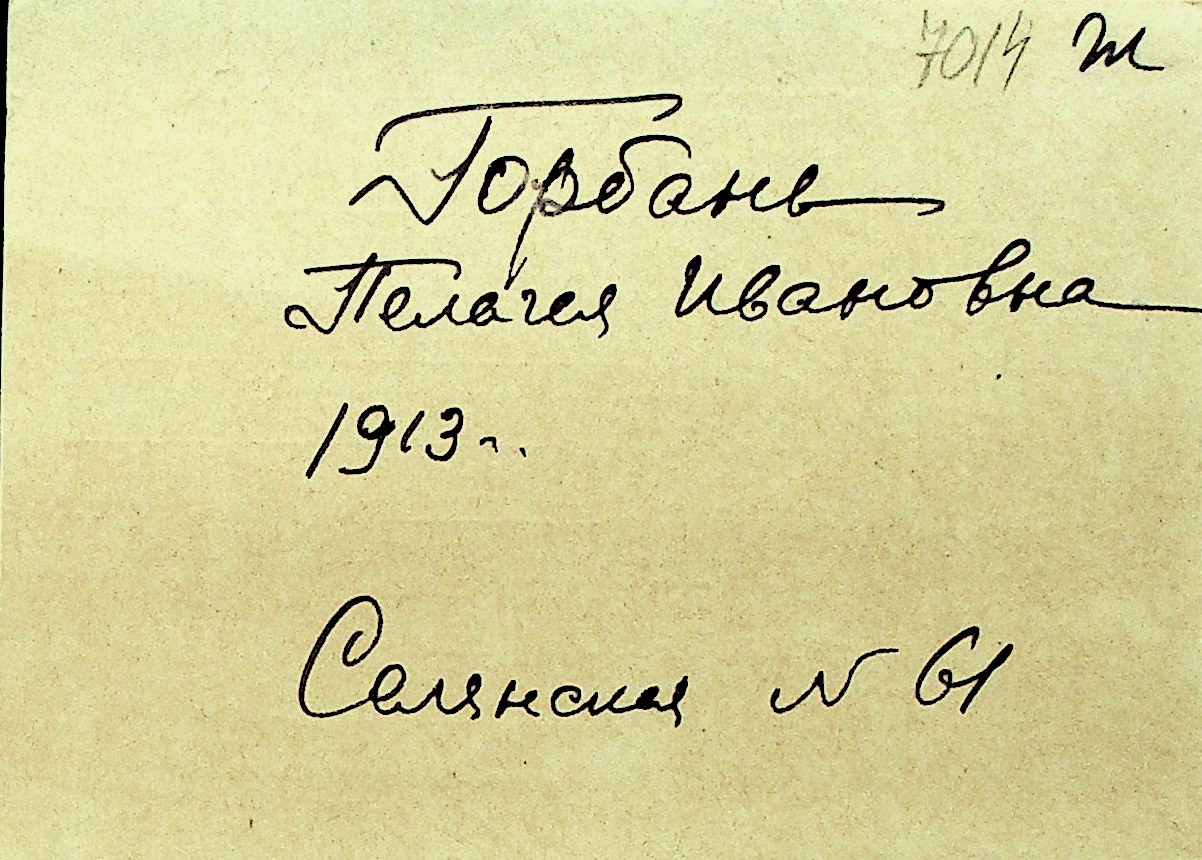 7014 Ж
Горбань
Пелагея Ивановна
1913 г.
Селянская № 61